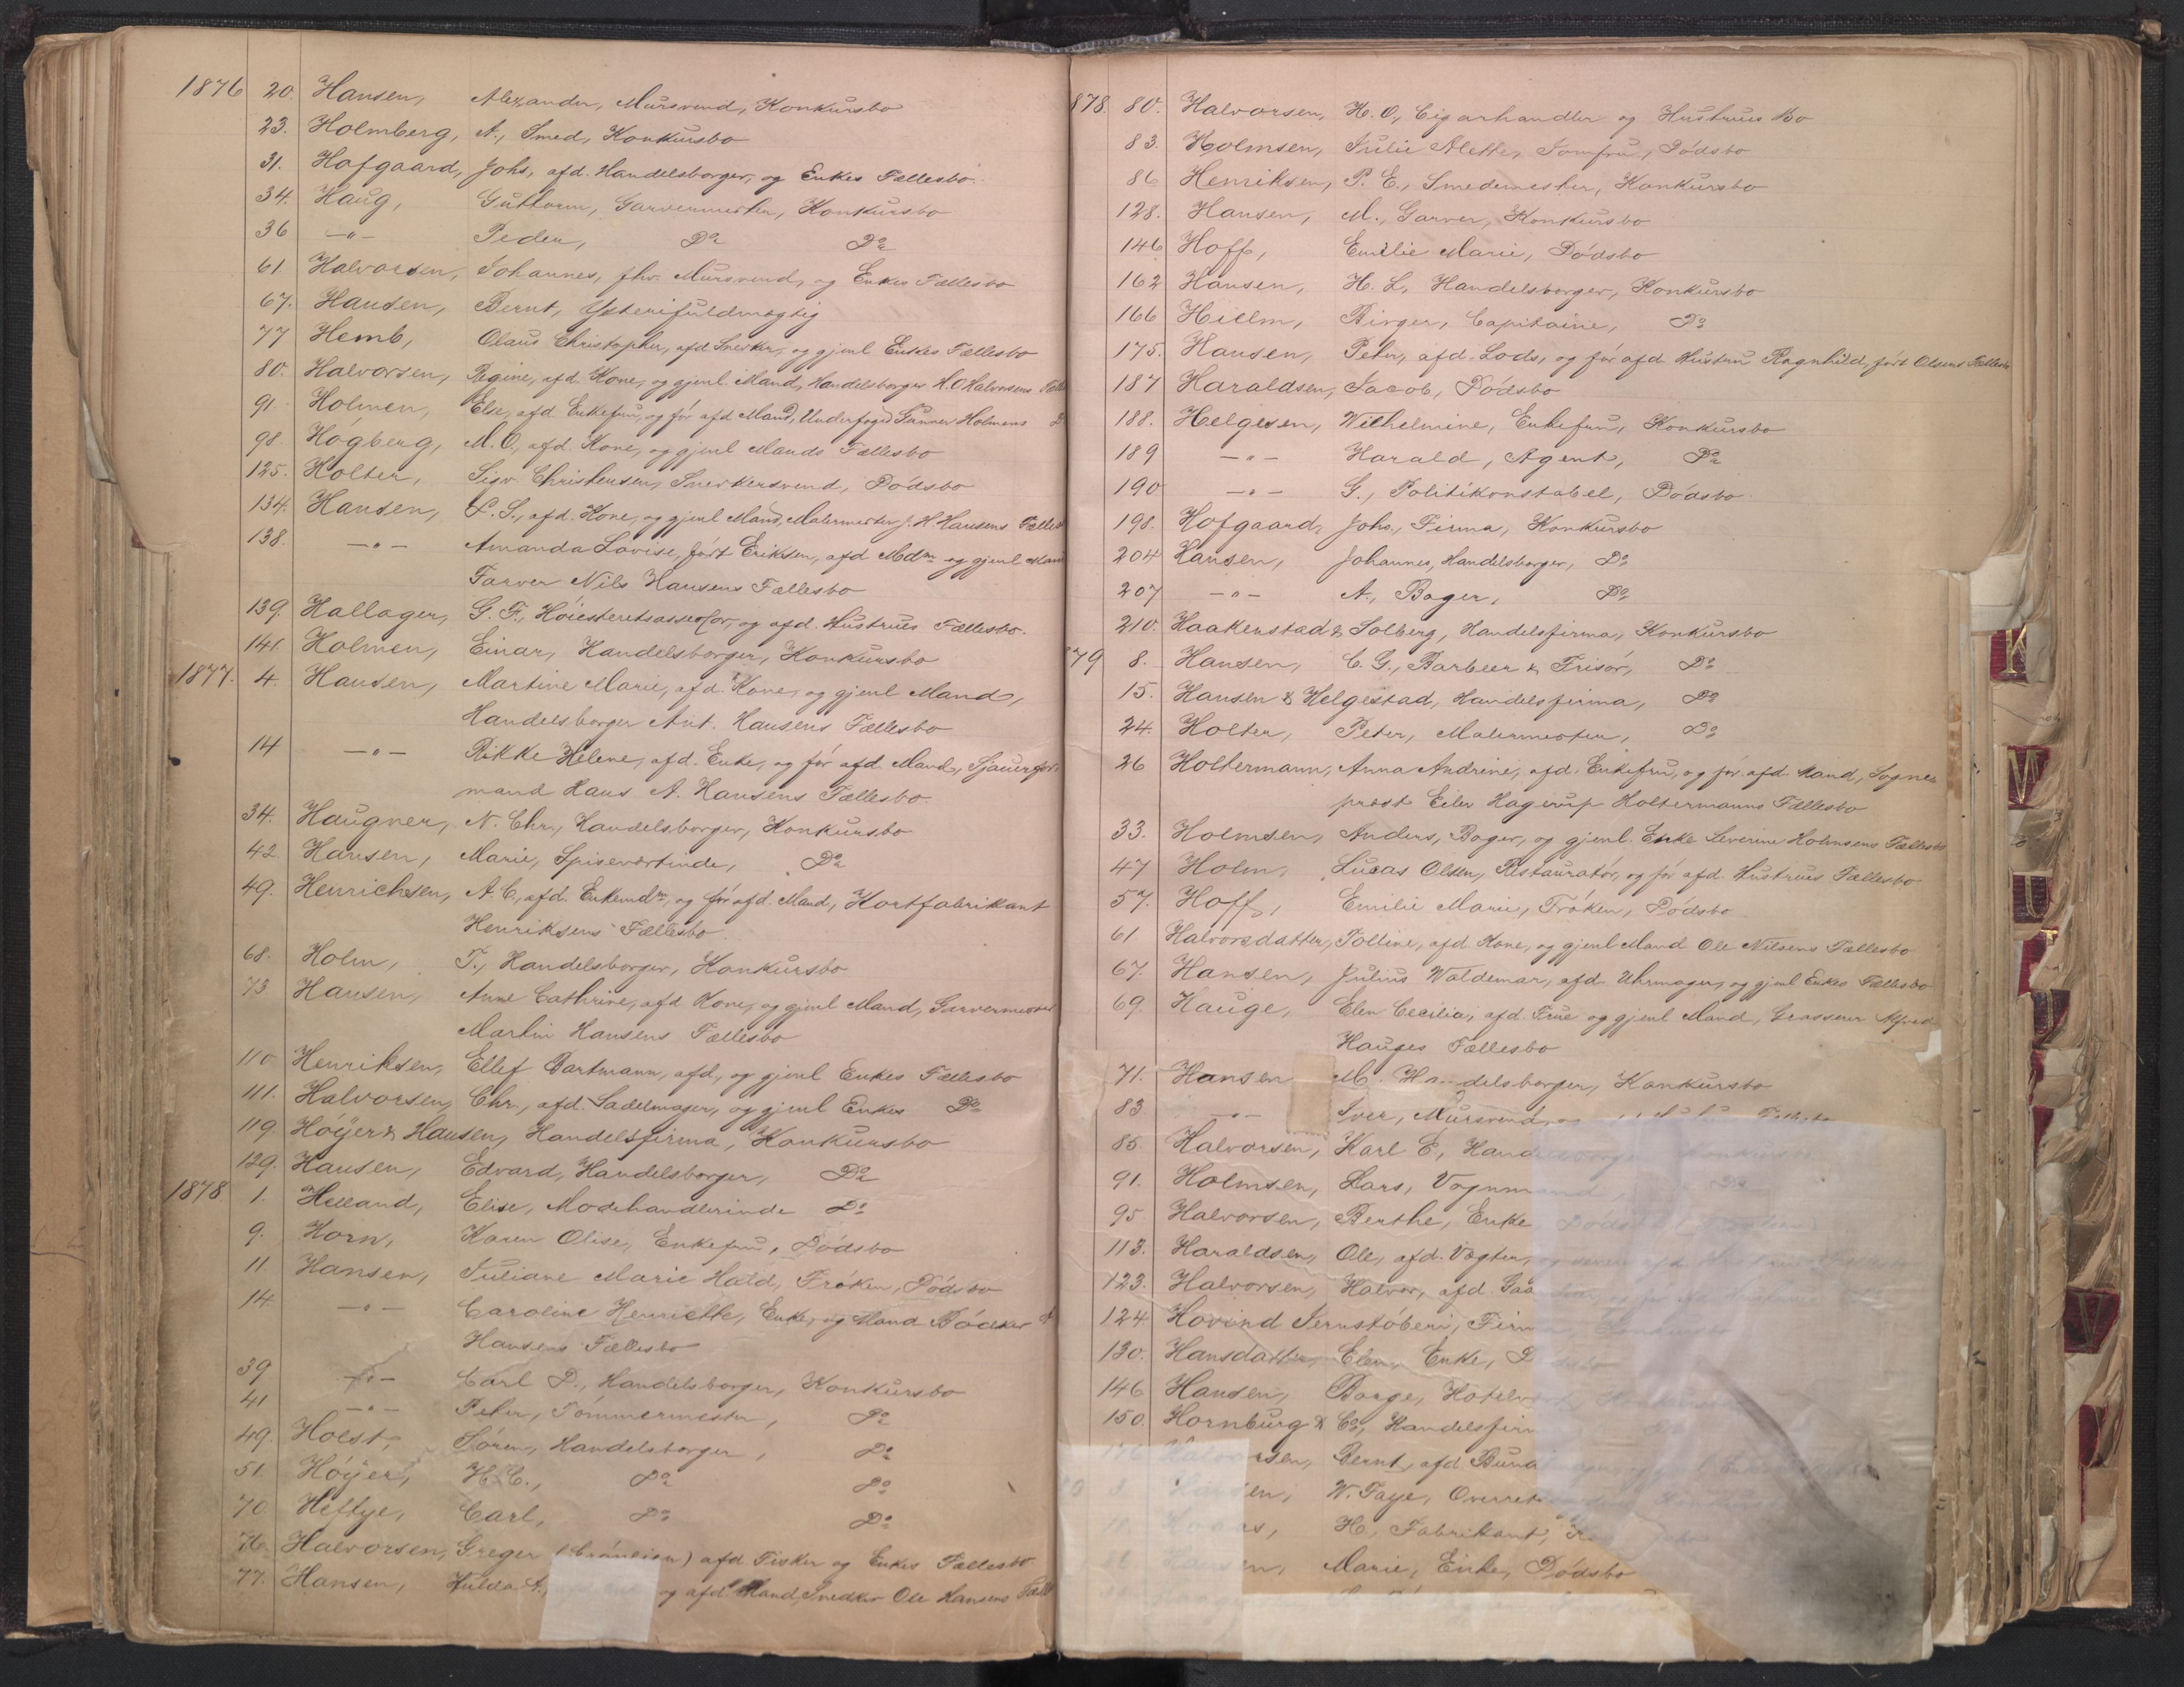 1876 20. Hansen, Alexander, Mursvend, Konkursbo
23. Holmberg, A., Smed, Konkursbo
31. Hofgaard, Johs, afd. Handelsborger, og Enkes Fællesbo.
34. Haug, Guttorm, Garvermester, Konkursbo
36 —„— Peder, Do Do
61. Halvorsen, Johannes, fhv. Mursvend, og Enkes Fællesbo
67. Hansen, Bernt, Ysterifuldmægtig
77 Hemb, Olaus Christopher, afd Snedker, og gjenl Enkes Fællesbo
80. Halvorsen, Regine, afd. Kone, og gjenl. Mand, Handelsborger H.O Halvorsens
91. Holmen, Else, afd. Enkefru, og før afd Mand, Underfoged Gunner Holmens
98. Høgberg, M.O., afd. Kone, og gjenl Mands Fællesbo
125. Holter, Sigv. Christensen, Snedkersvend, Dødsbo
134. Hansen, L. S., afd. Kone, og gjenl Mand, Malermester J. H Hansens
138. —„— Amanda Lovise, født Eriksen, afd Mdm og gjenl Mand
Farver Nils Hansens Fællesbo
139. Hallager, G. F., Høiesteretsassessor, og afd. Hustrues Fællesbo.
141. Holmen, Einar, Handelsborger, Konkursbo
1877. 4. Hansen, Martine Marie, afd. Kone, og gjenl Mand,
Handelsborger Ant. Hansens Fællesbo
14 —„— Rikke Helene, afd. Enke, og før afd Mand, Sjauerfor-
mand Hans A. Hansens Fællesbo.
34. Haugner, N. Chr., Handelsborger, Konkursbo
42. Hansen, Marie, Spiseværtinde, Do
49. Henrichsen, A. C., afd. Enkemdm, og før afd. Mand, Kortfabrikant
Henriksens Fællesbo
68. Holm, T., Handelsborger, Konkursbo
73 Hansen, Anne Cathrine, afd Kone, og gjenl Mand, Garvermester
Martin Hansens Fællesbo
110 Henriksen, Ellef Bartmann, afd., og gjenl Enkes Fællesbo
111. Halvorsen, Chr., afd. Sadelmager, og gjenl Enkes Do
119. Høyer & Hansen, Handelsfirma, Konkursbo
129. Hansen, Edvard, Handelsborger, Do
1878 1. Helland, Elise, Modehandlerinde Do
9. Horn, Karen Olise, Enkefru, Dødsbo
11 Hansen, Juliane Marie Hald, Frøken, Dødsbo
14 —„— Caroline Henriette, Enke, og Mand Bødker
Hansens Fællesbo
39 —„— Carl D., Handelsborger, Konkursbo
41 —„— Peter, Tømmermester, Do
49. Holst, Søren, Handelsborger, Do
51. Høyer, H. C., Do Do
70. Heftye, Carl, Do Do
76. Halvorsen, Greger afd. Fisker og Enkes Fællesbo
77. Hansen, Hulda A., og afd. Mand, Snedker Ole Hansens
878. 80. Halvorsen, H. O., Cigarhandler og Hustrues Bo
83. Holmsen, Julie Alette, Jomfru, Dødsbo
86 Henriksen, P. E., Smedemester, Konkursbo
128. Hansen, M., Garver, Konkursbo
146 Hoff, Emilie Marie, Dødsbo
162 Hansen, H. L, Handelsborger, Konkursbo
166 Hielm, Birger, Capitaine, Do
175. Hansen, Peter, afd. Lods, og før afd Hustru Ragnhild, født Olsens Fællesbo
187 Haraldsen, Jacob, Dødsbo
188. Helgesen, Wilhelmine, Enkefru, Konkursbo
189 —„— Harald, Agent, Do
190 —„— G., Politikonstabel, Dødsbo
198. Hofgaard, Johs, Firma, Konkursbo
204 Hansen, Johannes, Handelsborger, Do
207 —„— A., Bager, Do
210. Haakenstad & Solberg, Handelsfirma, Konkursbo
79 8. Hansen, C. G., Barbeer & Frisør, Do
15. Hansen & Helgestad, Handelsfirma, Do
24. Holter, Peter, Malermester, Do
26 Holtermann, Anna Andrine, afd. Enkefru, og før. afd. Mand, Sogne-
præst Eiler Hagerup Holtermanns Fællesbo
33. Holmsen, Anders, Bager, og gjenl. Enke Severine Holmsens Fællesbo
47 Holm, Lucas Olsen, Restauratør, og før afd. Hustrues Fællesbo
57. Hoff, Emilie Marie, Frøken, Dødsbo
61. Halvorsdatter, Polline, afd. Kone, og gjenl Mand Ole Nilsens Fællesbo
67. Hansen, Julius Waldemar, afd. Uhrmager, og gjenl Enkes Fællesbo
69. Hauge, Elen Cecilia, afd. Frue og gjenl Mand, Grosserer Alfred
Hauges Fællesbo
71. Hansen M. Handelsborger, Konkursbo
83 —„— Iver, Mursvend,
85 Halvorsen, Karl E, Handelsborger Konkursbo
91. Holmsen, Lars, Vognmand, Do
95 Halvorsen, Berthe, Enke, Dødsbo
113. Haraldsen, Ole, afd. Vægter,
123. Halvorsen, Halvor, afd.
124 Hovind Jernstøberi, Firma, Konkursbo
130. Hansdatter, Elen, Enke, Dødsbo
146 Hansen, Borge,
150. Hornburg & Co, Handelsfirma
Halvorsen, Bernt, afd.
W. Faye,
H., Fabrikant,
Marie, Enke, Dødsbo
K
M
U
V